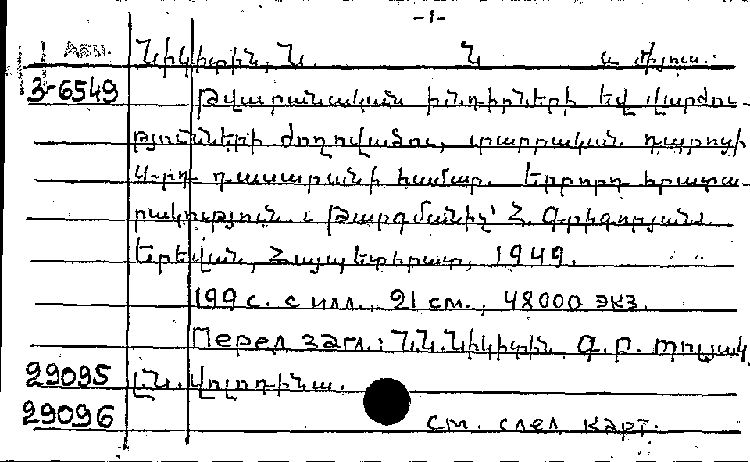 -1-
Նիկիտին, Ն. Ն. և մյուս.
3-6549 Թվաբանական խնդիրների եվ վարժու-
թյունների ժողովածու, տարրական դպրոցի
4-րդ դասարանի համար. Երրորդ հրատա-
րակություն. Թարգմանիչ՝ Հ. Գրիգորյանց
Երեվան, Հայպետհրատ, 1949.
199 с. с илл., 21 см., 48000 экз.
Перед загл.: Ն.Ն.Նիկիտին, Գ.Բ. Պոլյակ,
29095 Լ.Ն. Վոլոդինա.
29096 см. след. карт.